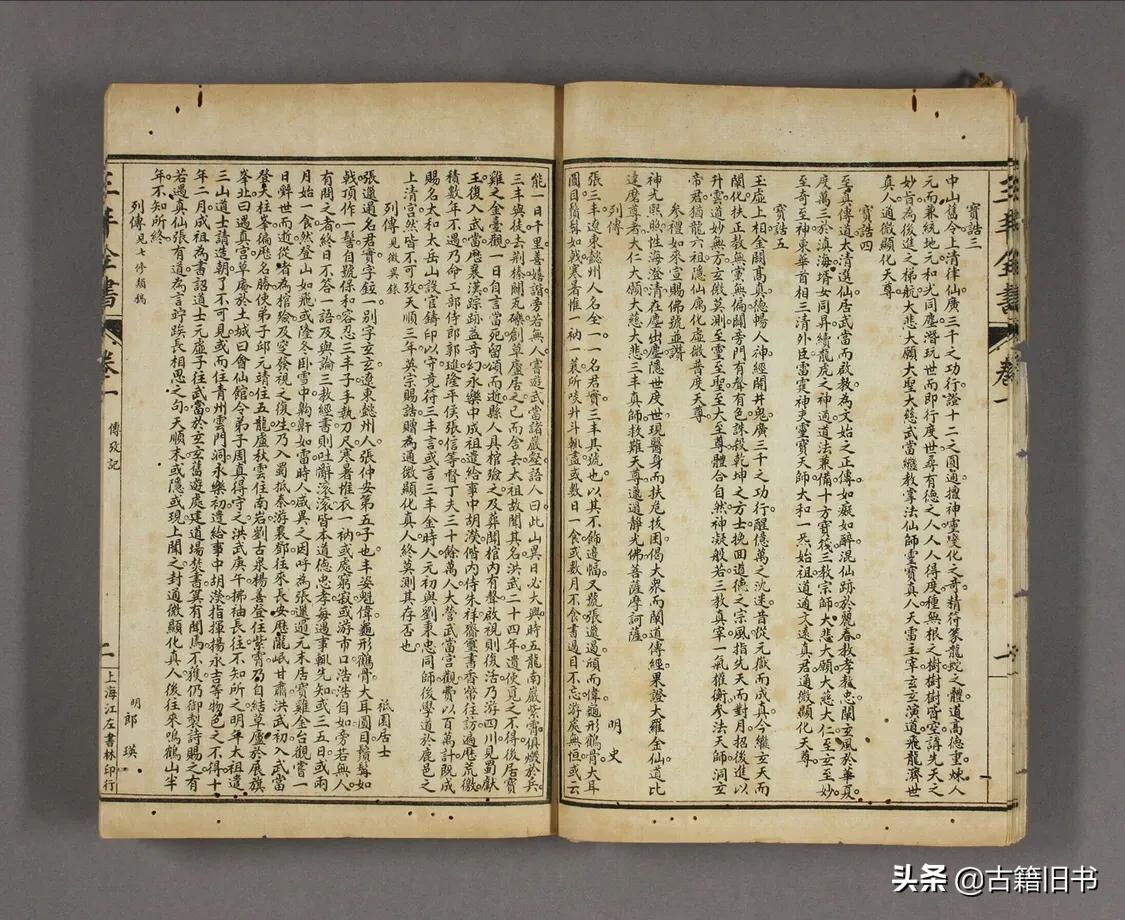 三丰全書 卷一
寶誥三
中山舊令上清律仙廣三千之功行證十二之圓通擅神靈變化之奇精符篆龍蛇之體道高德重煉人
元而兼統地元和光同塵潛玩世而即行度世尋有德之人人人得度種無根之樹樹樹齊空講先天之
妙旨為後進之梯航大悲大願大聖大慈武當纘教掌法仙師靈寶真人天雷主宰玄玄演道飛龍濟世
真人通微顯化天尊
寶誥四
至真傳道太清選仙居武當而啟教為文始之正傳如癡如醉混仙跡於麗春教孝教忠闡玄風於華夏
度萬三於滇海壻女同昇續龍虎之神通道法兼備十方寶筏三教宗師大悲大願大慈大仁至玄至妙
至奇至神東華首相三清外臣雷霆神吏靈寶天師大和一炁始祖道通文遠真君通微顯化天尊
寶誥五
玉虛上相金闕高真德暢人神經開井鬼廣三千之功行醒億萬之沈迷昔從元嶽而成真今繼玄天而
闡化扶正教無黨無偏闢旁門有聲有色誅殺乾坤之方士挽回道德之宗風指先天而對月招後進以
升雲道妙無方玄微莫測至靈至聖至大至尊體合自然神凝般若三教真宰一氣權衡參法天師洞玄
帝君猶龍六祖隱仙属化虛微普度天尊
参禮如來宣賜佛號並讚
神光照照性海澄清在塵出塵隱世度世現醫身而扶危拔困偈大衆而闡道傳經果證大羅金仙道比
達磨尊者大仁大願大慈大悲三丰真師救難天尊邋遢靜光佛菩薩摩訶薩
列傳
明史
張三丰遼東懿州人名全一一名君寶三丰其號也以其不飾邊幅又號張邋遢頎而偉龜形鶴骨大耳
圓目鬚髯如戟寒暑惟一衲一蓑所啖升斗輒盡或數日一食或數月不食書過目不忘游處無恒或云
能一日千里善嬉諧旁若無人嘗遊武當諸巖壑語人曰此山異日必大興時五龍南巖紫霄俱燬於兵
三丰與徒去荆榛闢瓦礫創草廬居之已而舍去太祖故聞其名洪武二十四年遣使覓之不得後居寶
雞之金臺觀一日自言當死留頌而逝縣人具棺殮之及葬聞棺內有聲啟視則復活乃游四川見蜀獻
王復入武當歷襄漢踪跡益奇幻永樂中成祖遣給事中胡濙偕內侍朱祥齎璽書香幣往訪遍歷荒徼
積數年不遇乃命工部侍郎郭璡隆平侯張信等督丁夫三十餘萬人大營武當宮觀費以百萬計既成
賜名太和太岳山設官鑄印以守竟符三丰言或言三丰金時人元初與劉秉忠同師後學道於鹿邑之
上清宮然皆不可攷天順三年英宗賜誥贈為通微顯化真人終莫測其存否也
列傳 見微異錄
祗園居士
張邋遢名君實字鉉一別字玄玄遼東懿州人張仲安第五子也丰姿魁偉龜形鶴骨大耳圓目鬚髯如
戟頂作一髻自號保和容忍三丰子手執刀尺寒暑惟衣一衲或處窮寂或游市口浩浩自如旁若無人
有問之者終日不答一語及與論三教經書則吐辭滚滚皆本道德忠孝每遇事輒先知或三五日或兩
月始一食然登山如飛或隆冬卧雪中鼾鼾如雷時人咸異之因呼為張邋遢元末居寶雞金台觀嘗一
日辭世而逝從者為棺殮及窆發視之復生乃入蜀抵秦游襄鄧往來長安歷隴岷甘肅洪武初入武當
登天柱峯徧歷名勝使弟子邱元靖住五龍盧秋雲住南岩劉古泉楊善登住紫霄乃自結草廬於展旗
峯北曰遇真宮草庵於土城曰會仙館令弟子周真得守之洪武庚午拂袖長往不知所之明年太祖遣
三山道士請造朝了不可見或而住青州雲門洞永樂初遣給事中胡濙指揮揚永吉等物色之不得十
年二月成祖為書詔道士元虛子往武當於玄玄舊遊處建道場焚書冀有聞焉不獲仍御製詩賜之有
若遇真仙張有道為言竚跂長相思之句天順末或隱或現上聞之封通微顯化真人後往來鳴鶴山半
年不知所終
列傳 見七修類稿
明郎瑛
三丰全書 卷一 傳攷記 二 上海江左書林印行
头条 @古籍旧书